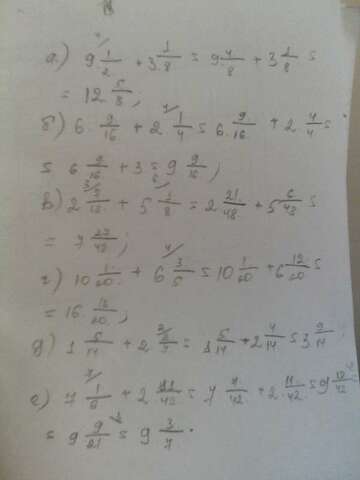 а) 9 1/2 + 3 1/8 = 9 4/8 + 3 1/8 =
= 12 5/8;
б) 6 9/16 + 2 1/4 = 6 9/16 + 2 4/4 =
= 6 9/16 + 3 = 9 9/16;
+ 5 /8 = 2 21/48 + 5 6/48 =
= 7 27/48;
г) 10 1/20 + 6 3/5 = 10 1/20 + 6 12/20 =
= 16 13/20;
д) 1 5/14 + 2 2/7 = 1 5/14 + 2 4/14 = 3 9/14
е) 7 1/6 + 2 11/42 = 7 7/42 + 2 11/42 = 9
= 9 9/21 = 9 3/7.